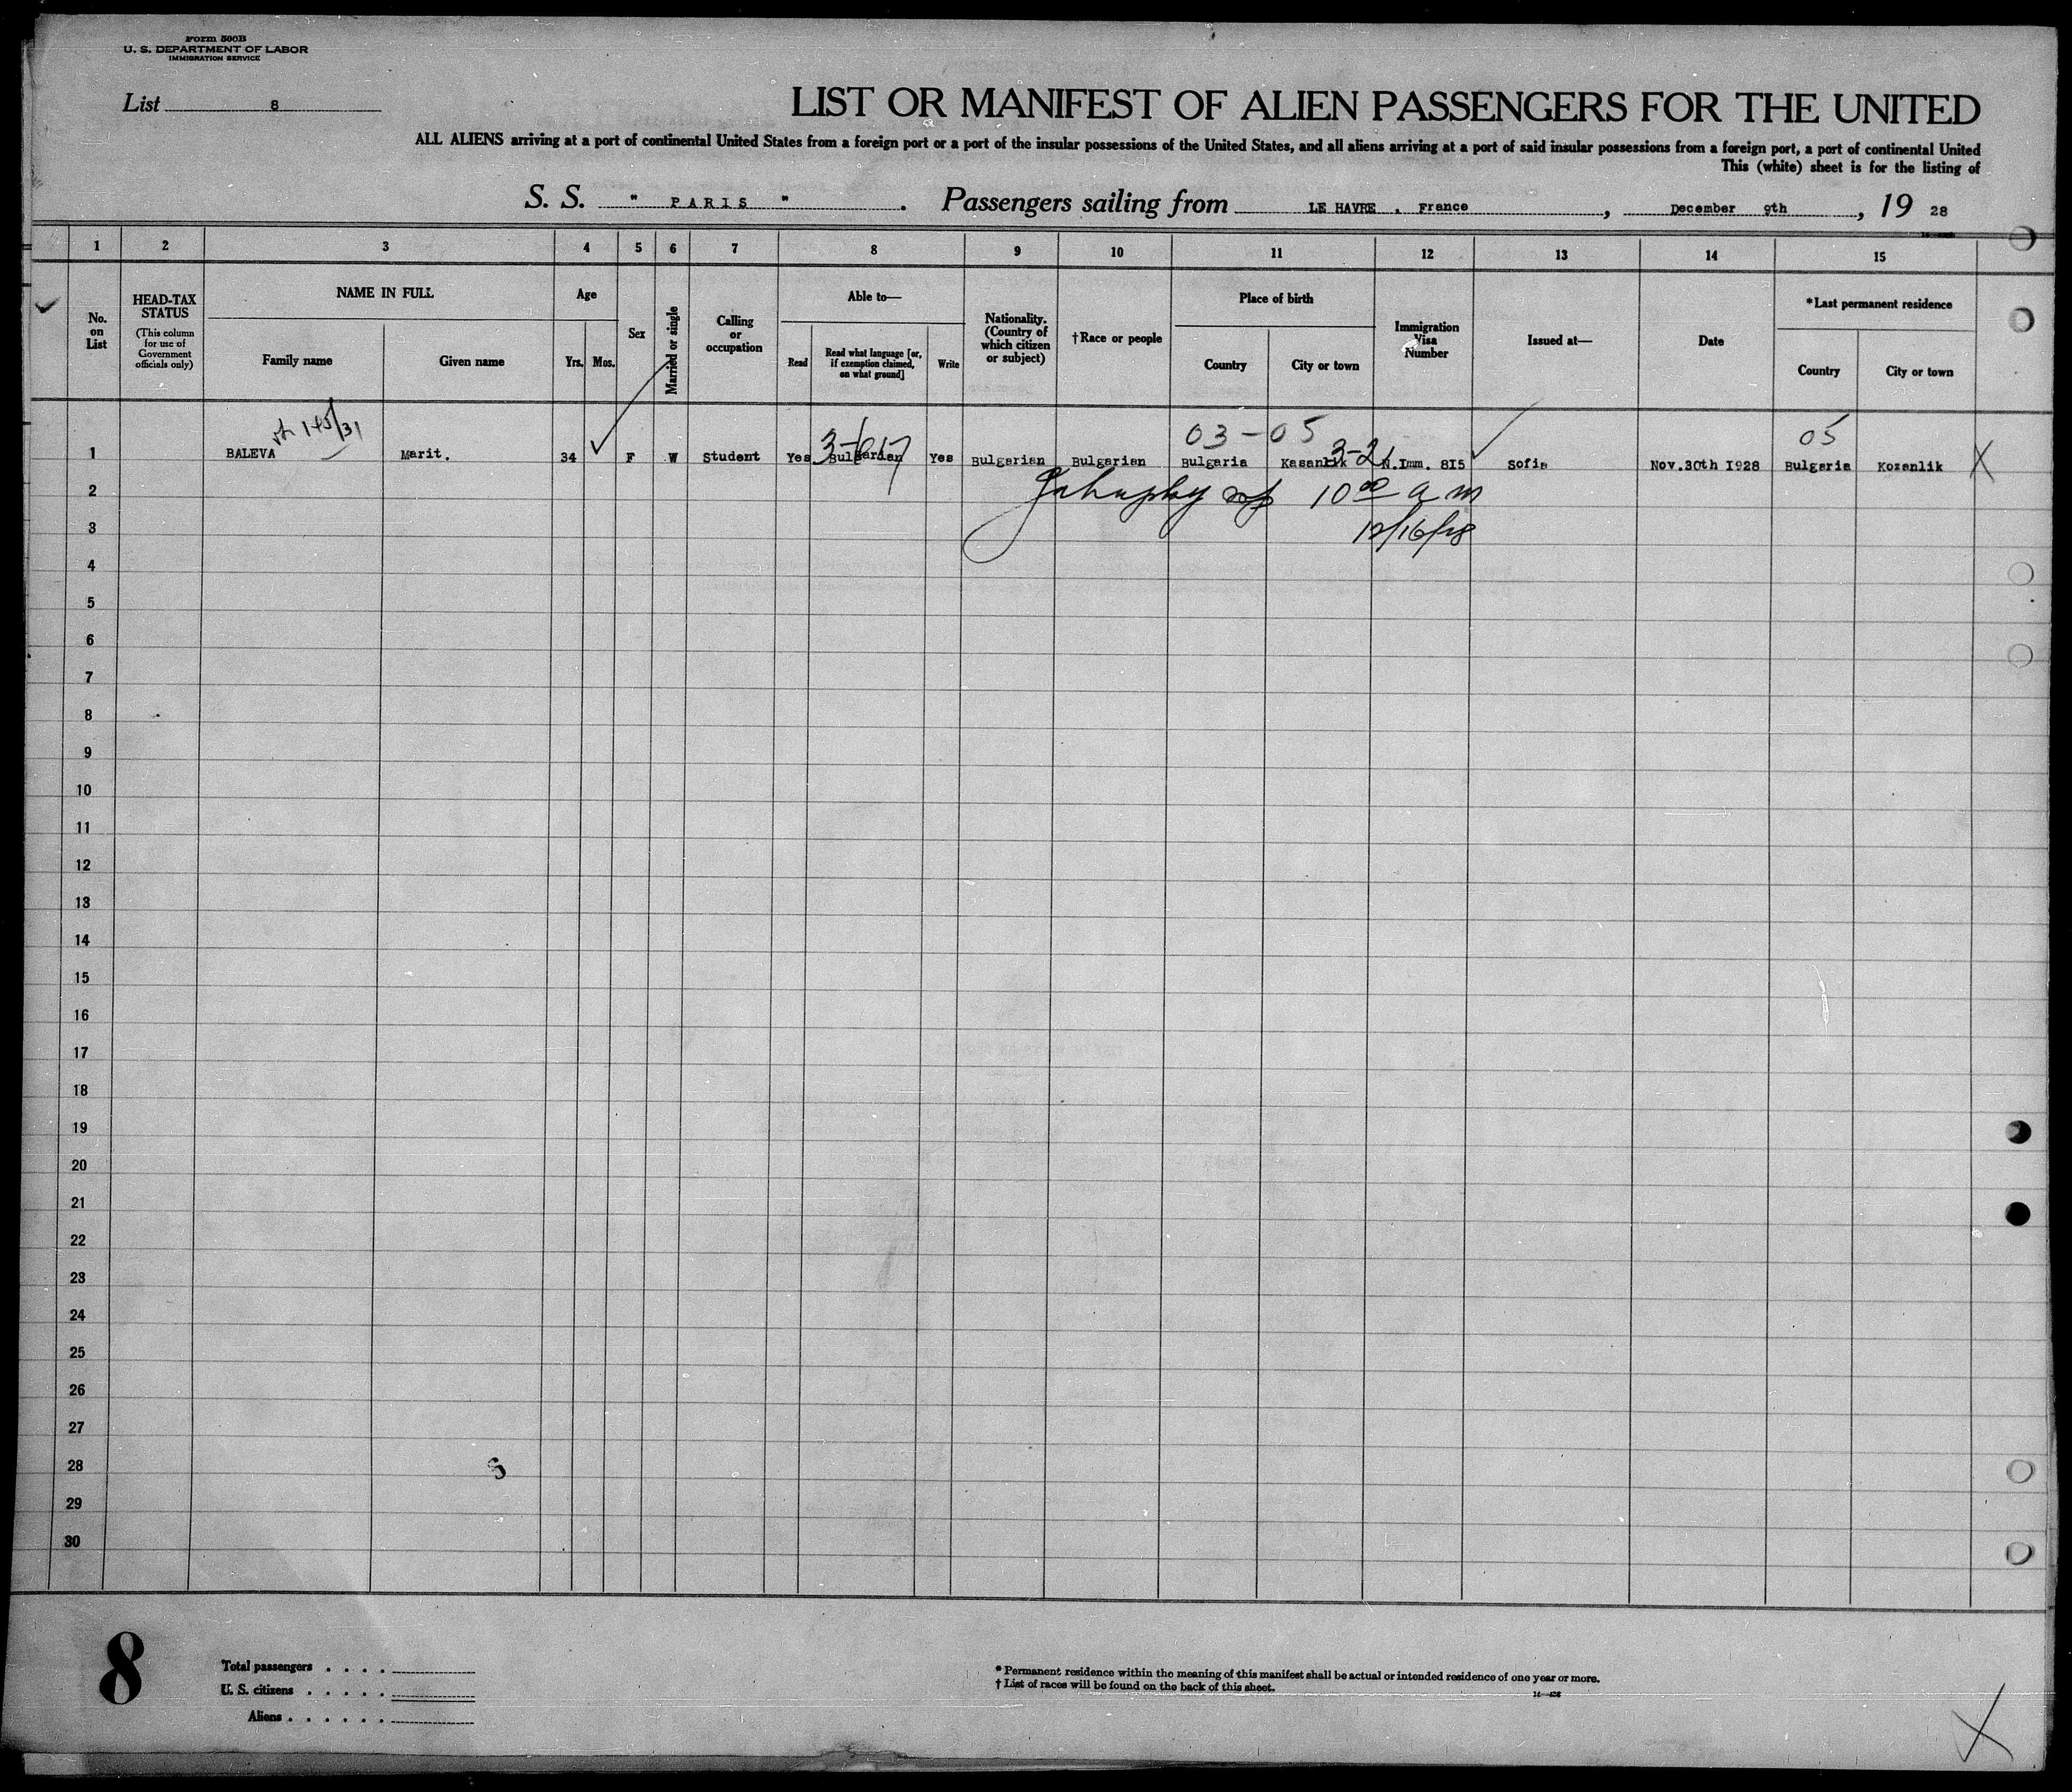 Form 500B
U. S. DEPARTMENT OF LABOR
IMMIGRATION SERVICE
List 8
LIST OR MANIFEST OF ALIEN PASSENGERS FOR THE UNITED
ALL ALIENS arriving at a port of continental United States from a foreign port or a port of the insular possessions of the United States, and all aliens arriving at a port of said insular possessions from a foreign port, a port of continental United
This (white) sheet is for the listing of
S. S. " PARIS " . Passengers sailing from LE HAVRE , France , December 9th , 19 28
1 2 3 4 5 6 7 8 9 10 11 12 13 14 15
No. on List
HEAD-TAX STATUS
(This column for use of Government officials only)
NAME IN FULL
Family name
Given name
Age
Yrs. Mos.
Sex
Married or single
Calling or occupation
Able to—
Read
Read what language [or, if exemption claimed, on what ground]
Write
Nationality. (Country of which citizen or subject)
†Race or people
Place of birth
Country
City or town
Immigration Visa Number
Issued at—
Date
*Last permanent residence
Country
City or town
145/31
03-05
05
1 BALEVA Marit. 34 F W Student Yes Bulgarian Yes Bulgarian Bulgarian Bulgaria Kasanlik N.Imm. 8I5 Sofia Nov.30th I928 Bulgaria Kozanlik X
2
10 00 a m
3
12/16/28
4
5
6
7
8
9
10
11
12
13
14
15
16
17
18
19
20
21
22
23
24
25
26
27
28
29
30
8
Total passengers . . . .
U. S. citizens . . . . .
Aliens . . . . . .
* Permanent residence within the meaning of this manifest shall be actual or intended residence of one year or more.
† List of races will be found on the back of this sheet.
X